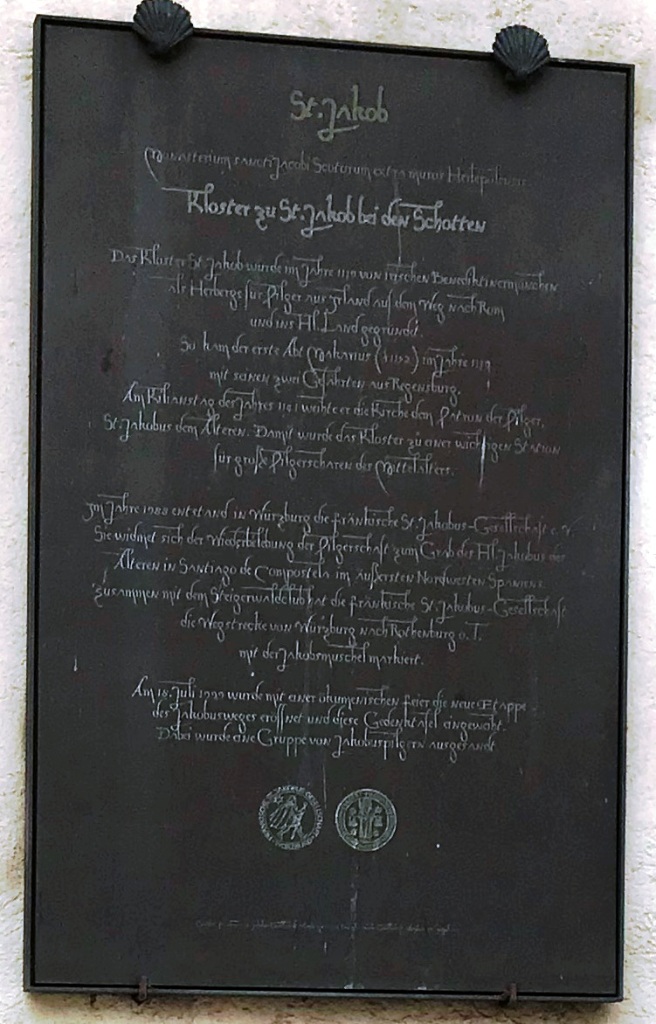 St. Jakob
Monasterium sancti Jacobi Scoturum extra muros Herbipolensis
Kloster zu St. Jakob bei den Schotten
Das Kloster St. Jakob wurde im Jahre von irischen Benediktinermönchen
als Herberge für Pilger aus Irland auf dem Weg nach Rom
und ins Hl. Land gegründet.
So kam der erste Abt Makarius im Jahre
mit seinen zwei Gefährten aus Regensburg.
Am Kilianstag des Jahres weihte er die Kirche dem Patron der Pilger,
St. Jakobus dem Älteren. Damit wurde das Kloster zu einer wichtigen Station
für große Pilgerscharen des Mittelalters.
Im Jahre 1988 entstand in Würzburg die fränkische St. Jakobus-Gesellschaft e. V.
Sie widmet sich der Wiederbelebung der Pilgerschaft zum Grab des Hl. Jakobus des
Älteren in Santiago de Compostela im äußersten Nordwesten Spaniens.
Zusammen mit dem Steigerwaldclub hat die fränkische St. Jakobus-Gesellschaft
die Wegstrecke von Würzburg nach Rothenburg o. T.
mit der Jakobsmuschel markiert.
Am 18. Juli 1992 wurde mit einer ökumenischen Feier die neue Etappe
des Jakobusweges eröffnet und diese Gedenktafel eingeweiht.
Dabei wurde eine Gruppe von Jakobuspilgern ausgesandt.